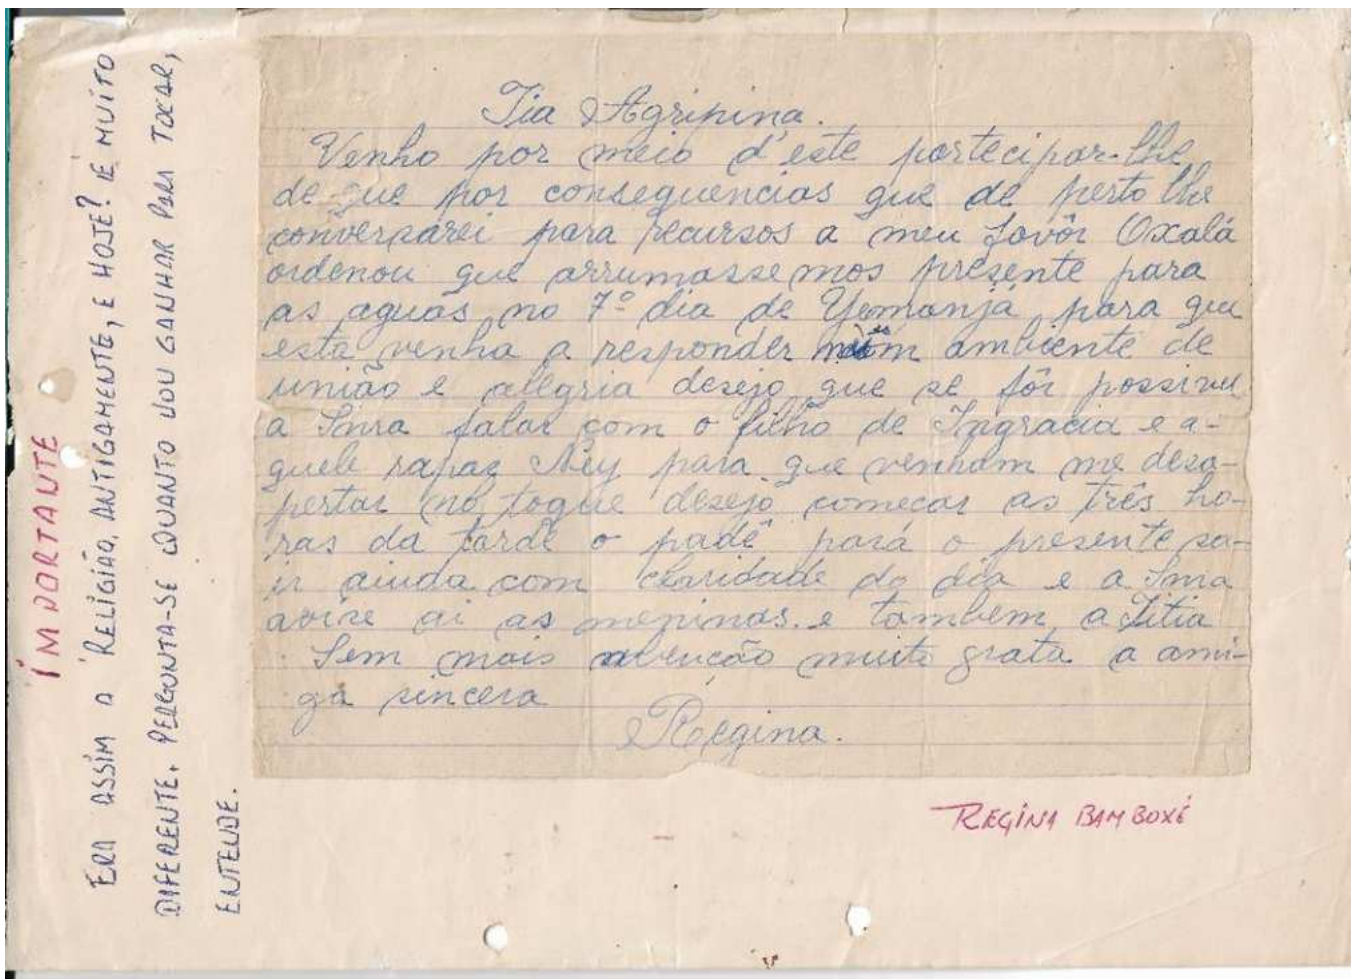 IMPORTANTE
ERA ASSIM A RELIGIÃO, ANTIGAMENTE, E HOJE? É MUITO
DIFERENTE. PERGUNTA-SE QUANTO VOU GANHAR PARA TOCAR,
ENTENDE.
Tia Agripina.
Venho por meio d'este partecipar-lhe
de que por consequencias que de perto lhe
conversarei para recursos a meu favôr Oxalá
ordenou que arrumassemos presente para
as aguas no 7º dia de Yemanjá para que
esta venha a responder num ambiente de
união e alegria desejo que se fôr possivel
a Snra falar com o filho de Ingracia e a-
quele rapaz Ney para que venham me desa-
pertar no toque desejo começar as três ho-
ras da tarde o padê para o presente sa-
ir ainda com claridade do dia e a Snra
avise ai as meninas. e tambem a Titia
Sem mais abenção muito grata a ami-
ga sincera
Regina.
REGINA BAMBOXÉ